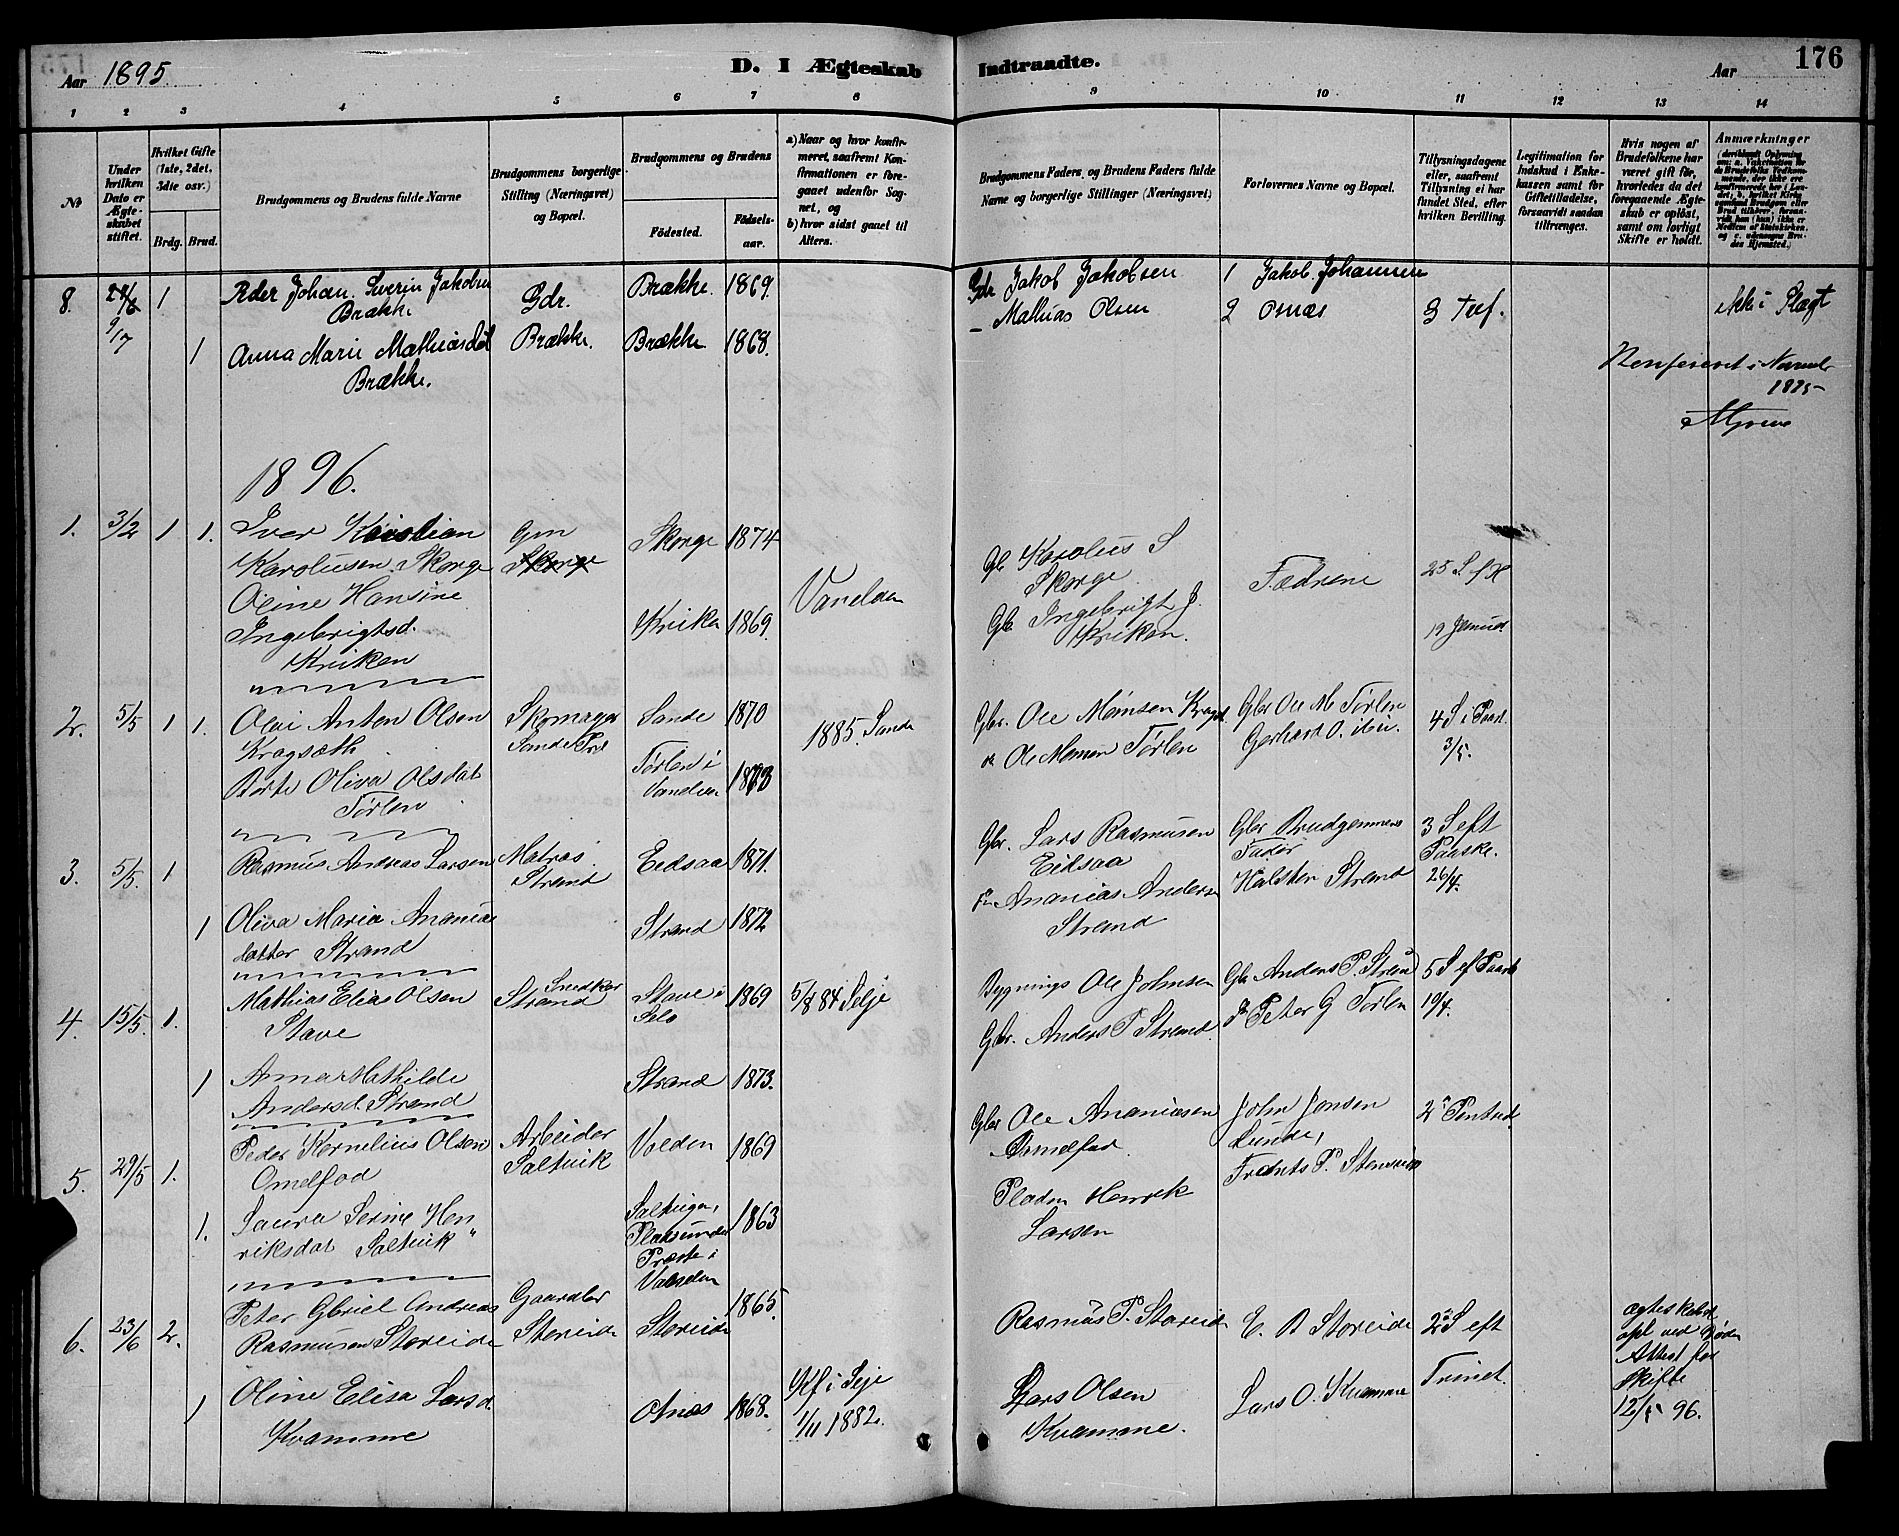 176
Aar 1895.
D. I Ægteskab Indtraadte.
Aar
1 2 3 4 5 6 7 8 9 10 11 12 13 14
No
Under hvilken Dato er Ægteskabet stiftet.
Hvilket Gifte (1ste, 2det, 3die osv.)
Brdg. Brud.
Brudgommens og Brudens fulde Navne
Brudgommens borgerlige Stilling (Næringsvei) og Bopæl.
Brudgommens og Brudens
Födested.
Födsels-aar.
a) Naar og hvor konfirmeret, saafremt Konfirmationen er foregaaet udenfor Sognet, og
b) hvor sidst gaaet til Alters.
Brudgommens Faders, og Brudens Faders fulde Navne og borgerlige Stillinger (Næringsvei)
Forlovernes Navne og Bopæl.
Tillysningsdagene eller, saafremt Tillysning ei har fundet Sted, efter hvilken Bevilling.
Legitimation for Indskud i Enkekassen samt for Giftetilladelse, forsaavidt saadan tiltrænges.
Hvis nogen af Brudefolkene har været gift för, hvorledes da det foregaaende Ægteskab er oplöst, samt om lovligt Skifte er holdt.
Anmærkninger
8. 1 Peder Johan Severin Jakobsen Brække Gdr. Brække. 1869. Gdr Jakob Jakobsen 1 Jakob Johannsen
9/7 1 Anna Marie Mathiasdat Brække. Brække. Brække 1868. – Mathias Olsen 2 Osnæs 3 Tref. ikke i Slægt
1895
1896.
1. 3/2 1 1. Iver Kristian Gm Skorge 1874 Gb Karolus S
Karolusen Skorge Skorge Skorge Fædrene
Oline Hansine Vanelven Gb. Ingebrigt J.
Ingebrigtsd. Kriken 1869. Kriken.
Kriken
2. 5/5 1 1. Olai Anten Olsen Skomager Sande 1870 1885. Sande Gbr. Ole Monsen Gbr Ole M Tørlen 4 S i Paast.
Kragsæth Ole Monsen Tørlen Gerhard O. ibi. 3/5.
Berte Oliva Olsdat Tørlen i
Tørlen
3. 5/5. 1 Rasmus Andreas Larsen Matros Eidsaa 1871. Gbr. Lars Rasmusen Gbr Brudgommens 3 S eft
Strand Eidsaa Fader Paaske.
Ananias Anders Halsten Strand 26/4.
1 Oliva Maria Ananias Strand 1872 Strand
datter Strand
4. 15/5. 1. Mathias Elias Olsen Snedker Stave i 1869 5/8 84 Selje Bygnings Ole Johnsen Gbr Anders P. Strand 5 S ef Paask
Stave Strand Gbr. Anders P Strand. Peter G Tørlen 19/4.
1 Anna Mathilde Strand 1873.
Andersd. Strand
5. 29/5 1. Peder Kornelius Olsen Arbeider Volden 1869 Gbr Ole Ananiasen John Jonsen
Omelfod Saltvik Lunde,
1. Laura Serine Hen 1863 Pladsm Henrik
riksdat Saltvik " Larsen
6. 23/6 2. Peter Gbriel Andreas Gaardbr 1865.
Rasmusen Storeide Storeide Storeide Rasmus P. Storeide E. B Storeide 2 S eft
Trinit.
ægteskabet
opl ved Død
Attest for
skifte
12/5 96.
1 Oline Elisa Larsd. Anæs 1868. Kf i Selje Lars Olsen Lars O. Kvamme
Kvamme 1/11 1882. Kvamme.